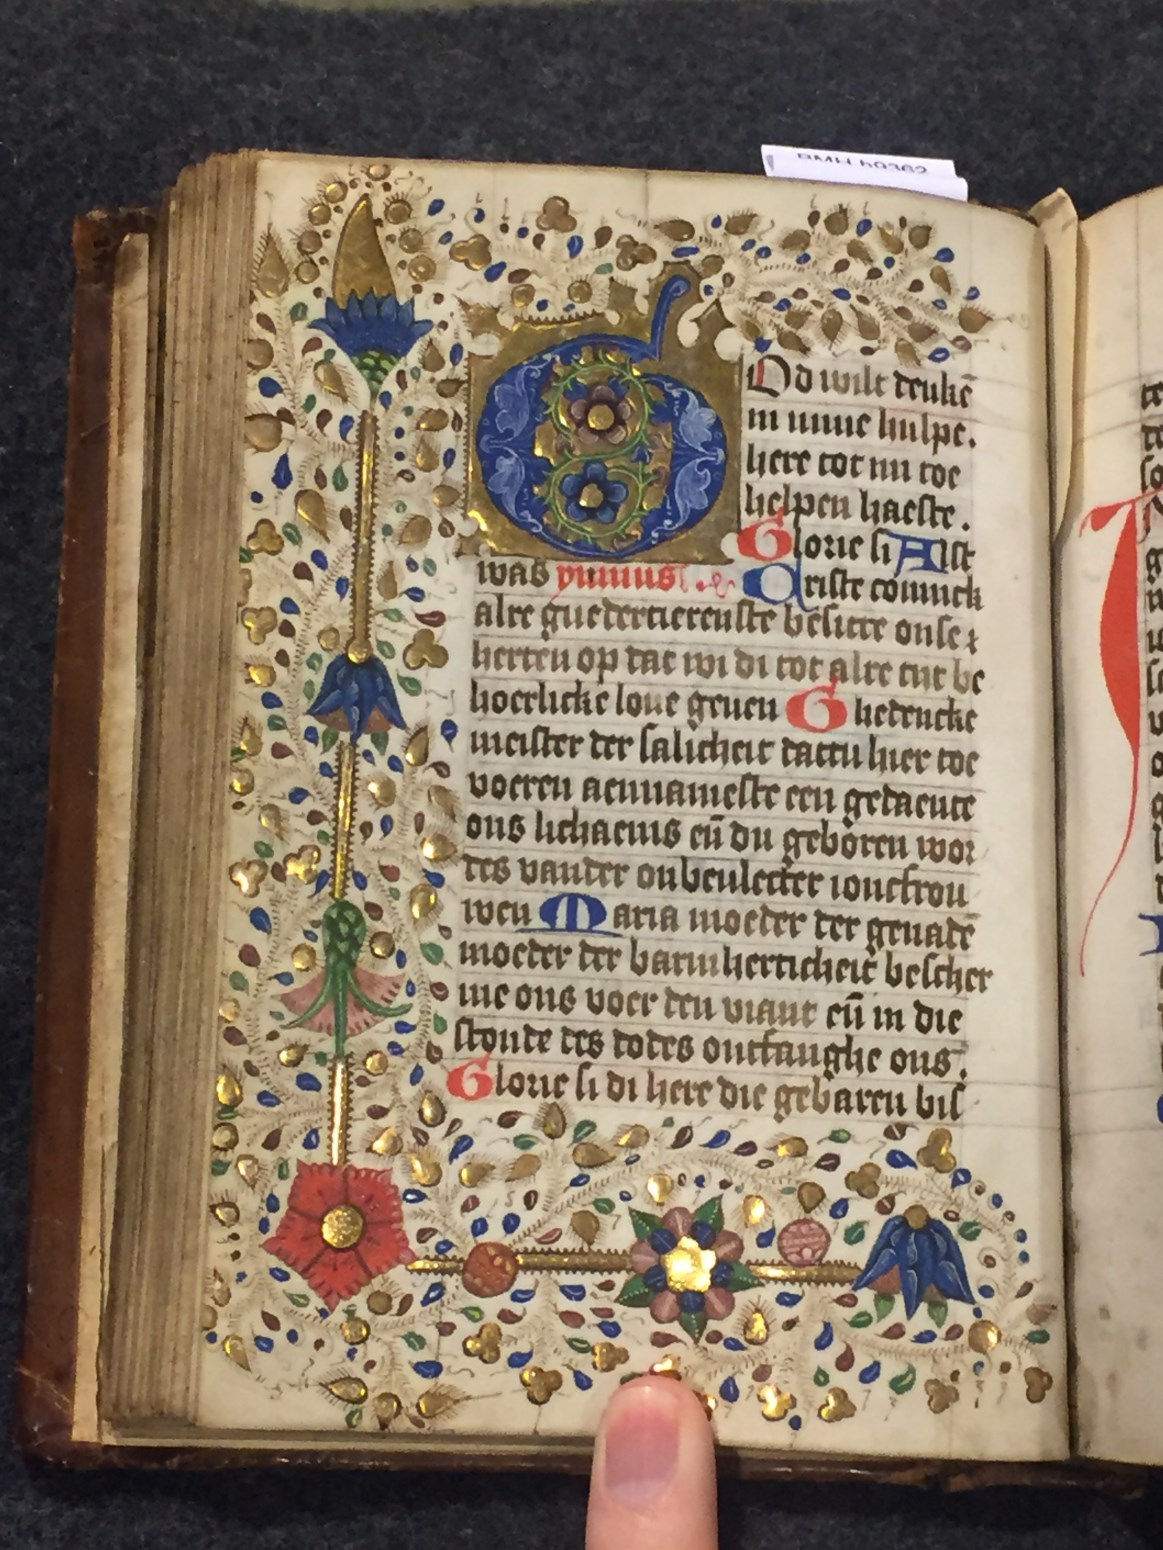 BMH h9362
God wilt denkē
in mine hulpe.
here tot mi toe
helpen haeste.
Glorie si Alst
was ymnus. Criste coninck
alre guedertierenste besitte onse
herten op dat wi di tot alre tijt be
hoerlicke loue geuen Ghedencke
meister der salicheit dattu hier toe
voeren aennameste een gedaente
ons lichaems eñ du geboren wor
des vander onbeulecter ioncfrou
wen Maria moeder der genadē
moeder der barmherticheit bescher
me ons voer den viant eñ in die
stonde des dodes ontfanghe ons.
Glorie si di here die gebaren bis